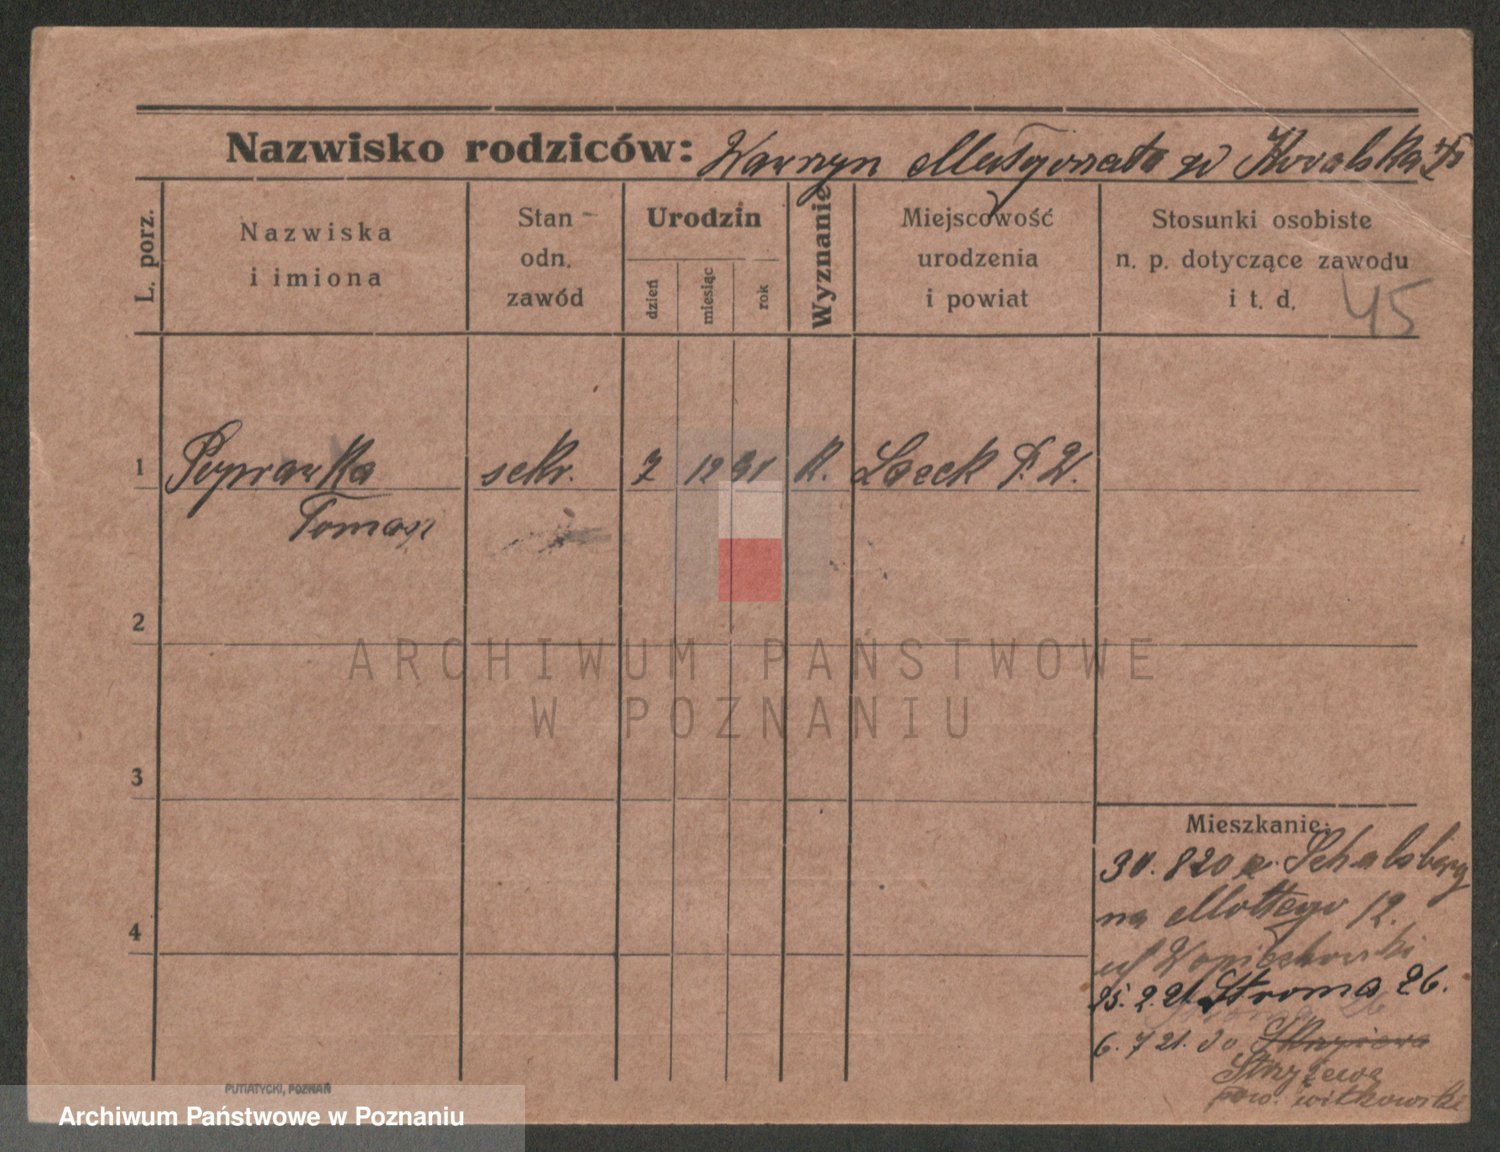 Nazwisko rodziców: Wawrzyn Małgorzata Kowalska
L. porz.
Nazwiska
i imiona
Stan
odn.
zawód
Urodzin
dzień
miesiąc
rok
Wyznanie
Miejscowość
urodzenia
i powiat
Stosunki osobiste
n. p. dotyczące zawodu
i t. d.
45
1 Poprawka sekr. 7 12 91 R.
Tomasz
2
ARCHIWUM PAŃSTWOWE
W POZNANIU
3
Mieszkanie:
30. 8 20
na 12.
4
25. 2. 21. Stroma 26.
6. 7 21. do
Strzyżewa
pow. witkowski
PUTIATYCKI, POZNAŃ
Archiwum Państwowe w Poznaniu